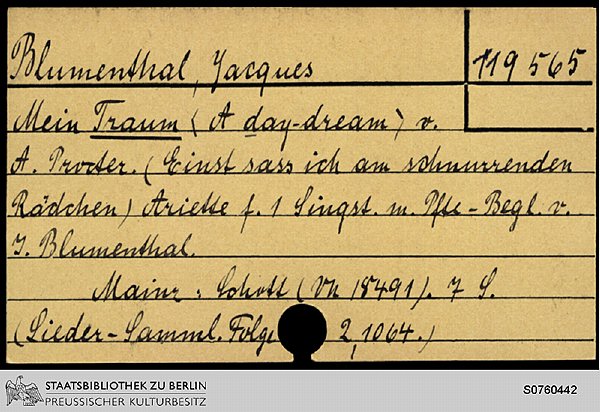 Blumenthal, Jacques
119 565
Mein Traum < A day-dream > v.
A. Procter. (Einst sass ich am schnurrenden
Rädchen) Ariette f. 1 Singst. m. Pfte-Begl. v.
J. Blumenthal.
Mainz: Schott (VN 18491). 7 S.
(Lieder-Samml. Folge 2, 1064.)
STAATSBIBLIOTHEK ZU BERLIN
PREUSSISCHER KULTURBESITZ
S0760442